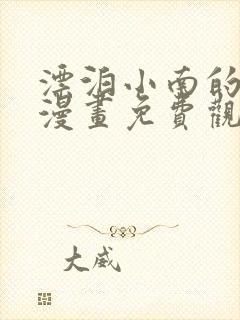 漂泊小南的
漫畫免費觀
大威